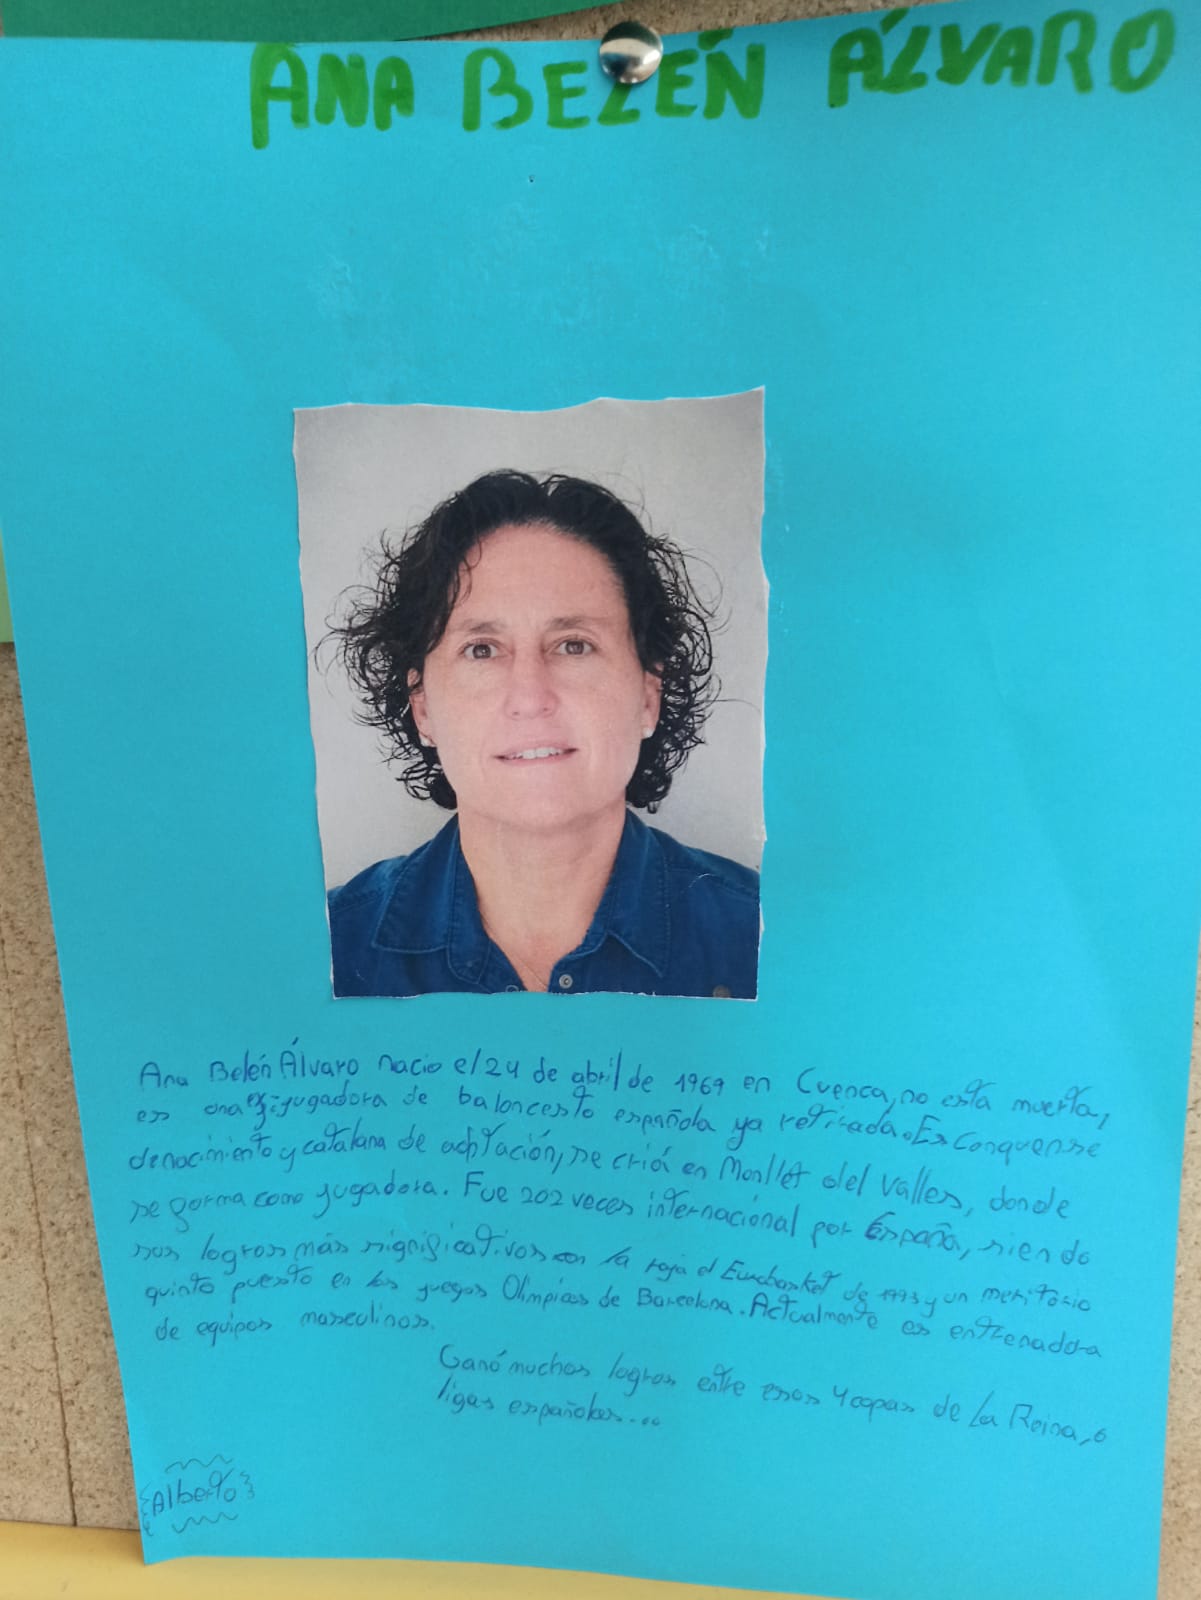 ANA BELÉN ÁLVARO
Ana Belén Álvaro nacio el 24 de abril de 1969 en Cuenca, no esta muerta,
es una ex-jugadora de baloncesto española ya retirada. Es Conquense
de nacimiento y catalana de adptación, se crió en Monllet del Valles, donde
se forma como jugadora. Fue 202 veces internacional por España, siendo
sus logros más significativos con la roja el Eurobasket de 1993 y un meritorio
quinto puesto en los juegos Olímpicos de Barcelona. Actualmente es entrenadora
de equipos masculinos.
Ganó muchos logros entre esos 4 copas de La Reina, 6
ligas españolas...
Alberto